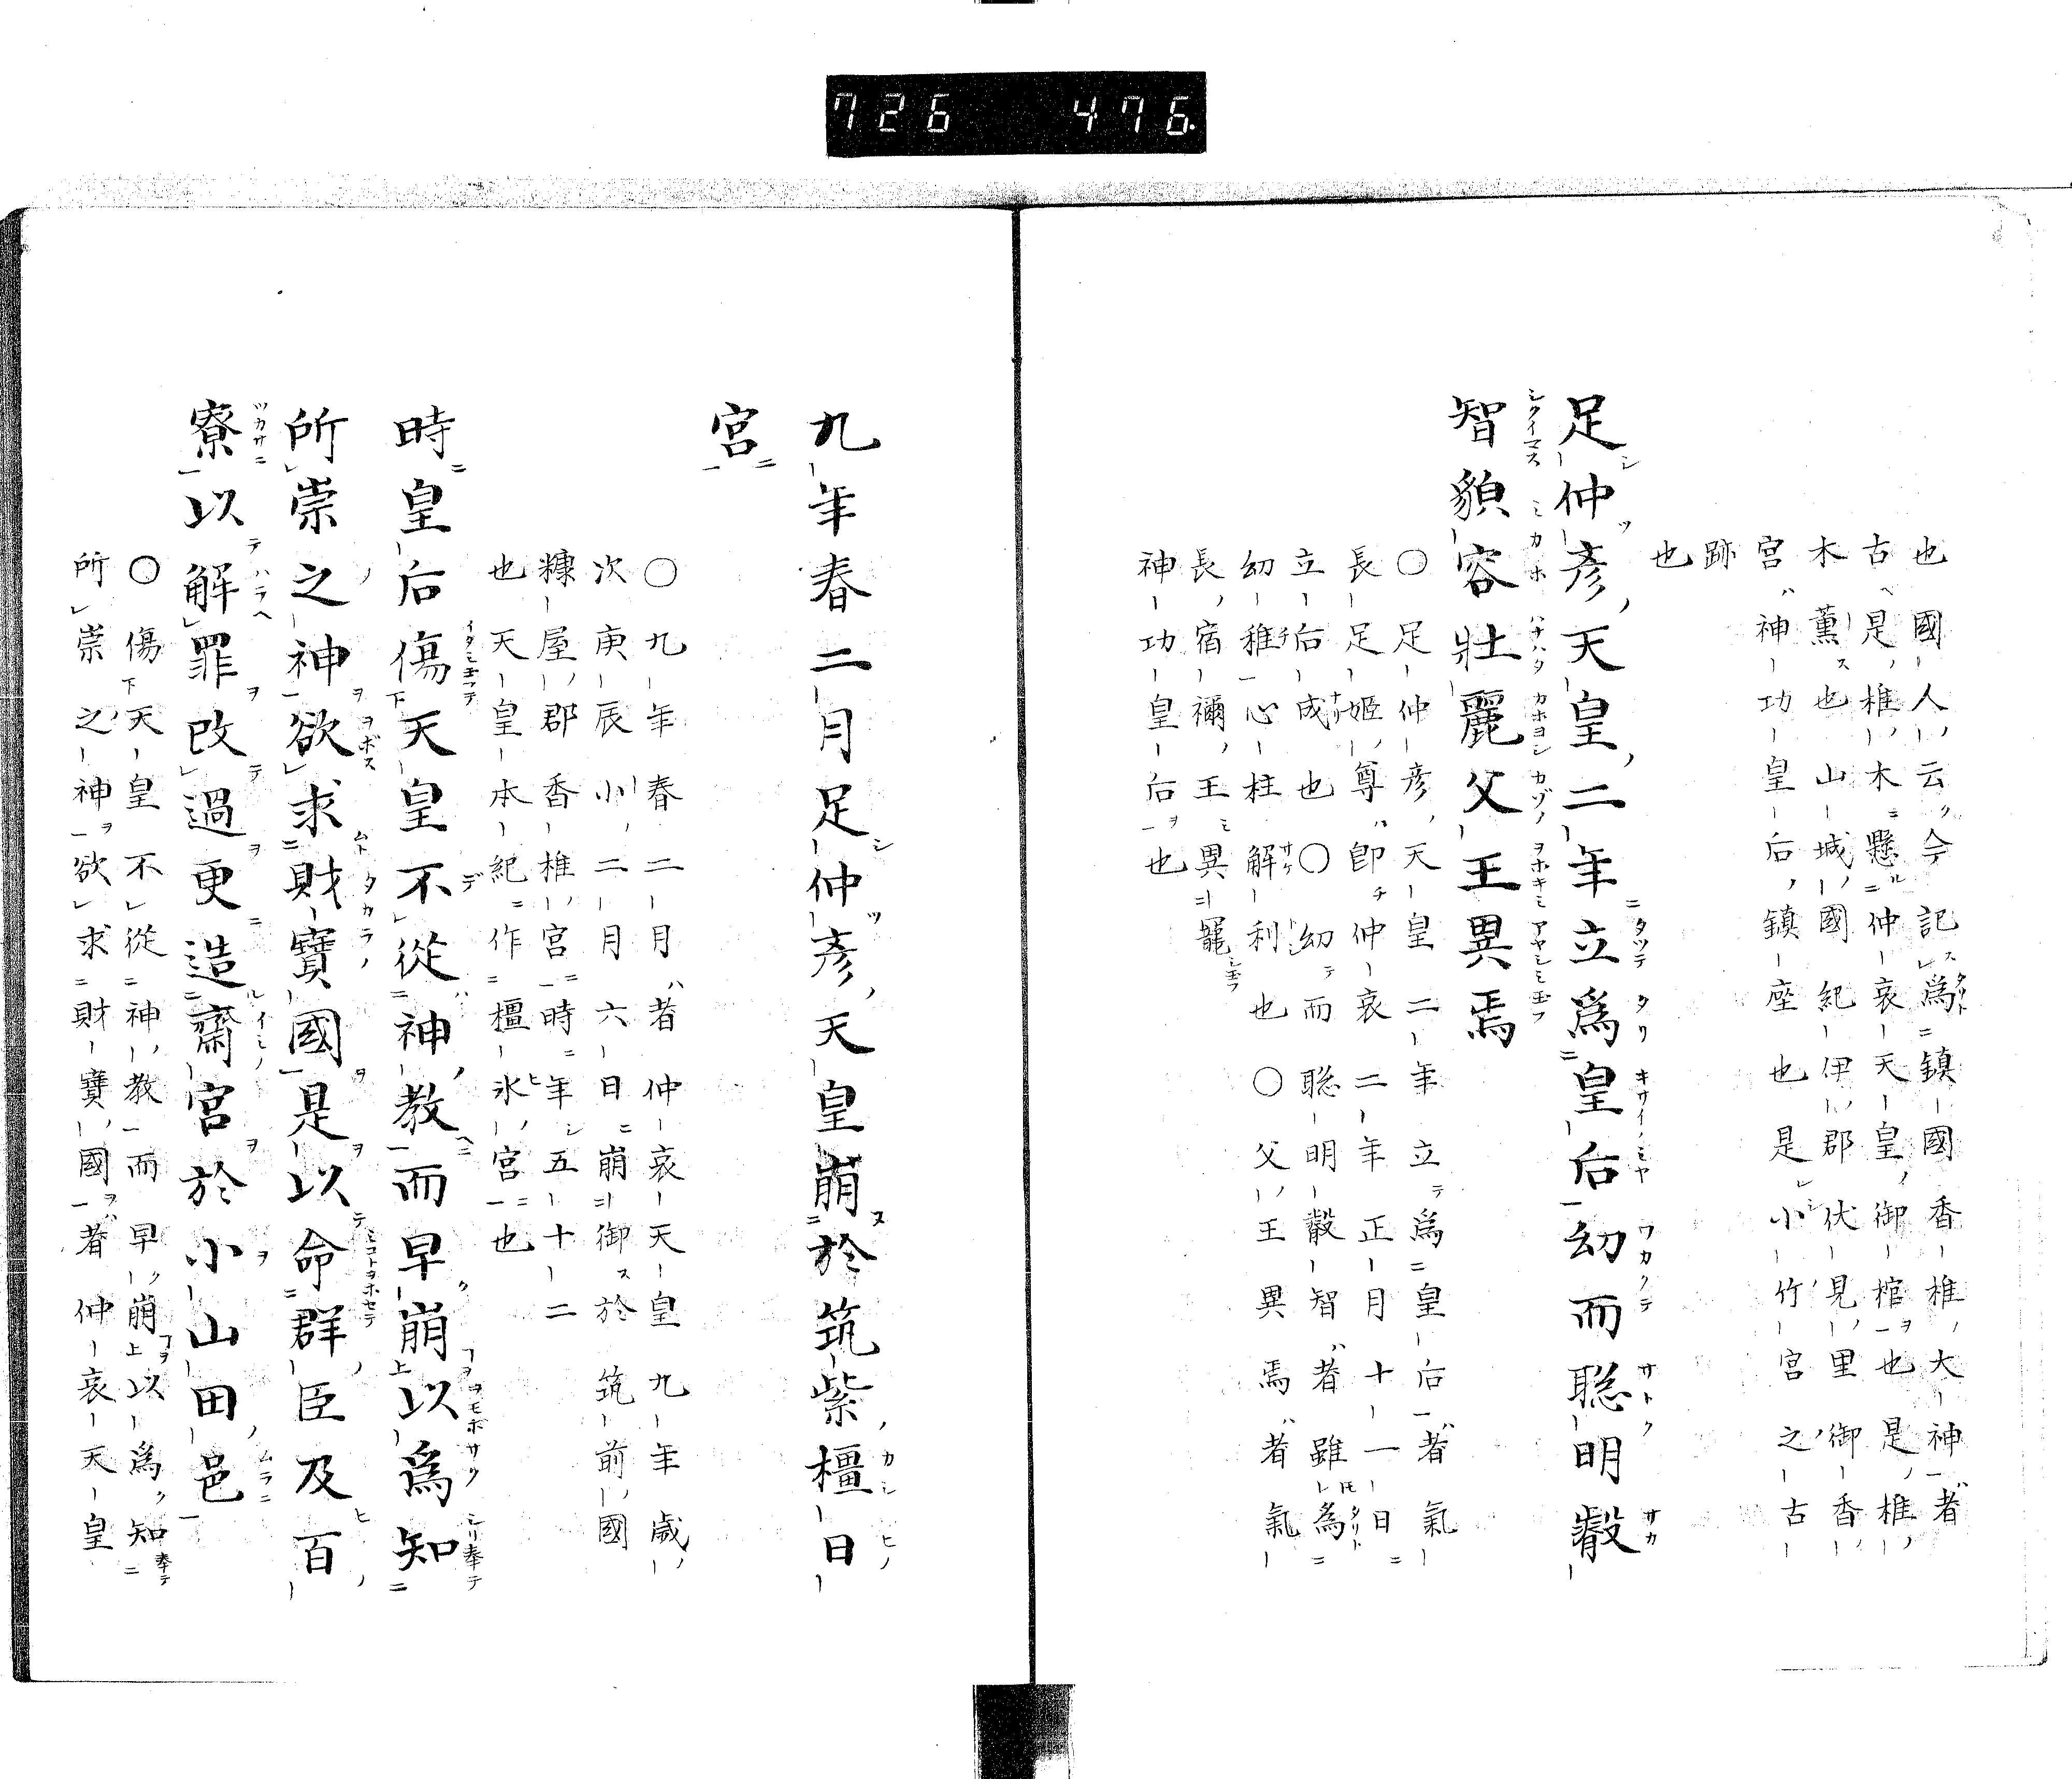 726 476
也國人云今記為鎮國香椎大神者
古是椎木懸仲哀天皇御棺也是椎
木薫也山城國紀伊郡伏見里御香
宮神功皇后鎮座也是小竹宮之古
跡
也
足仲彥天皇二年立爲皇后幼而聡明叡
智貌容壯麗父王異焉
〇足仲彦天皇二年立為皇后者氣
長足姫尊即仲哀二年正月十一日
立后成也〇幼而聡明叡智者雖為
幼稚心柱解利也〇父王異焉者氣
長宿禰王異寵
神功皇后也
九年春二月足仲彥天皇崩於筑紫橿日
宮
〇九年春二月者仲哀天皇九年歳
次庚辰小二月六日崩御於筑前國
糠屋郡香椎宮時年五十二
也天皇本紀作橿氷宮也
時皇后傷天皇不從神教而早崩以爲知
所崇之神欲求財寶國是以命群臣及百
寮以解罪改過更造齋宮於小山田邑
〇傷天皇不從神教而早崩以為知
所崇之神欲求財寶國者仲哀天皇